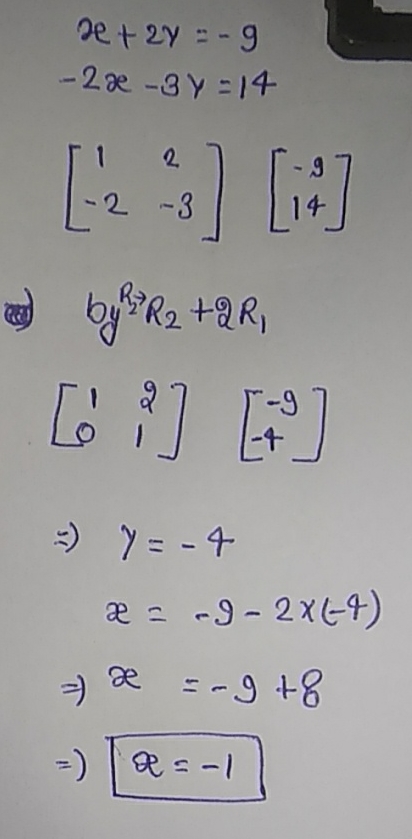 x + 2y = -9
-2x - 3y = 14
[ 1 2 ] [ -9 ]
[ -2 -3 ] [ 14 ]
by R2→R2 + 2R1
[ 1 2 ] [ -9 ]
[ 0 1 ] [ -4 ]
=) y = -4
x = -9 - 2×(-4)
=) x = -9 + 8
=) x = -1